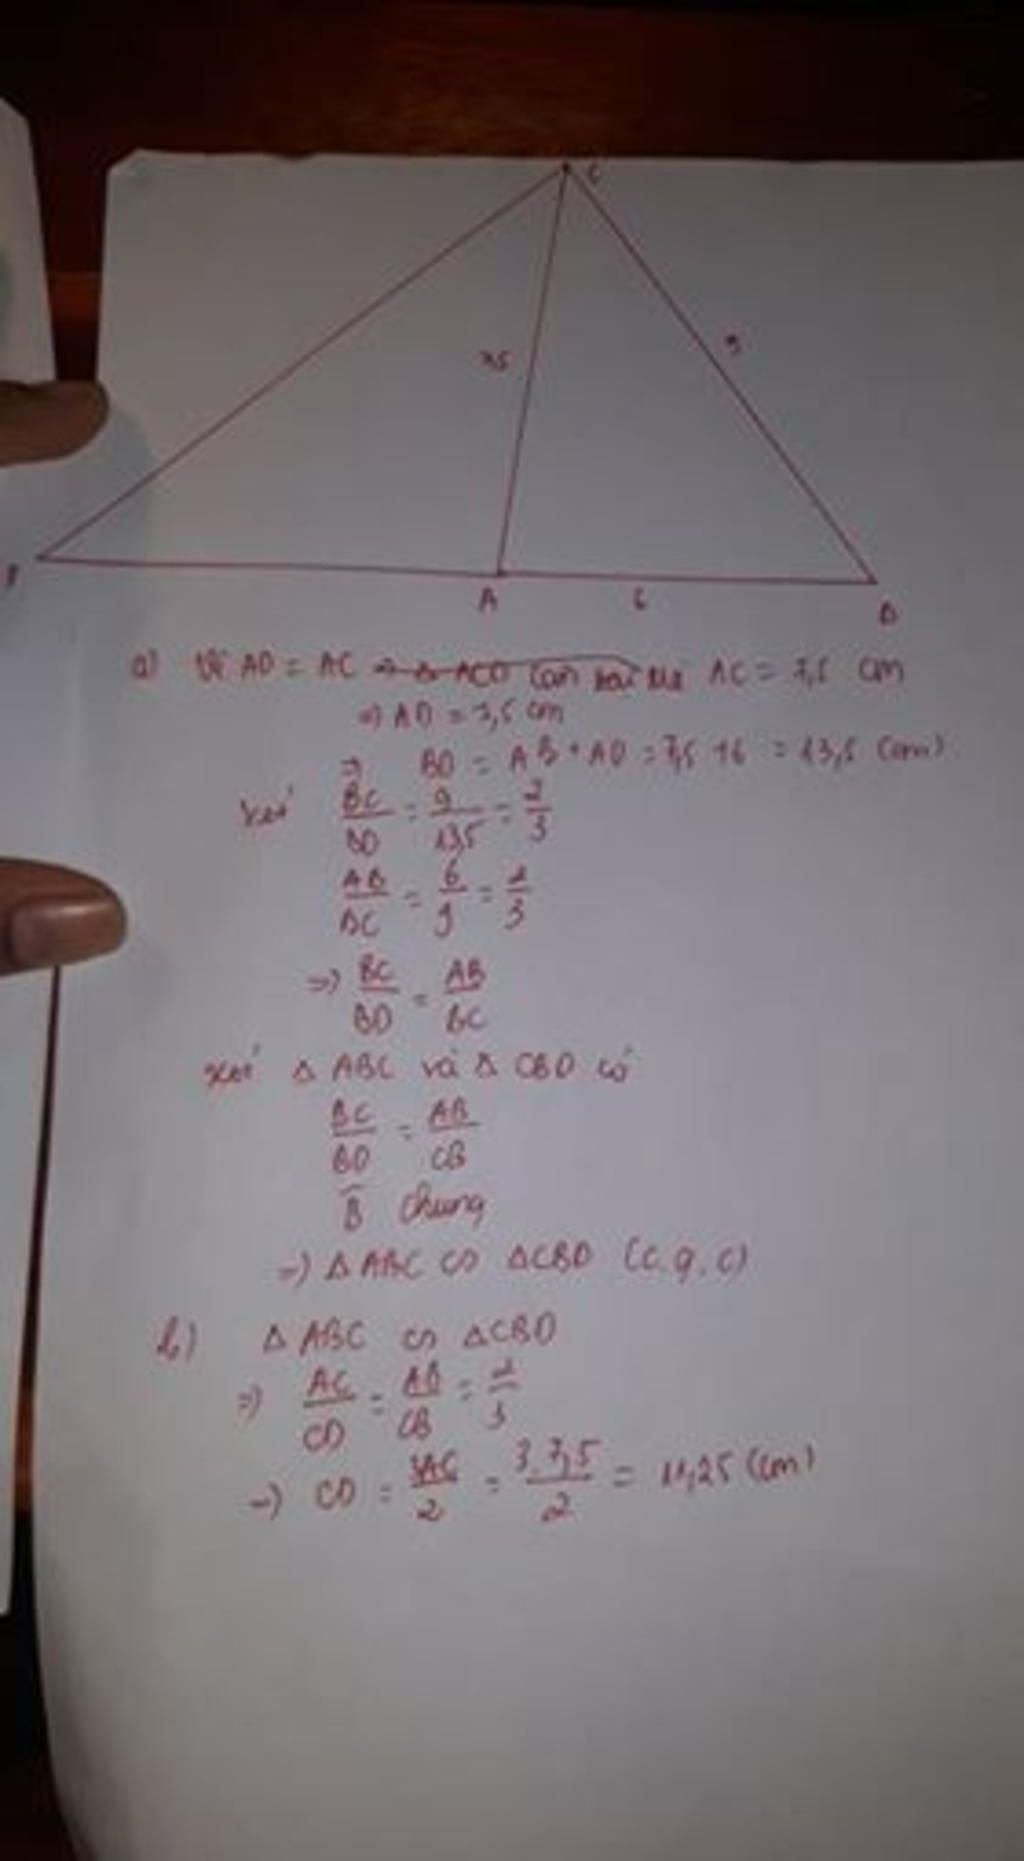 C
7,5
9
A
6
B
a) Vì AD = AC AC = 7,5 cm
=> AD = 7,5 cm
=> BD = AB + AD = 7,5 + 6 = 13,5 (cm)
Xét BC/BD = 9/13,5 = 2/3
AB/BC = 6/9 = 2/3
=> BC/BD = AB/BC
Xét Δ ABC và Δ CBD có
BC/BD = AB/CB
B̂ chung
=> Δ ABC ∽ Δ CBD (c.g.c)
b) Δ ABC ∽ Δ CBD
=> AC/CD = AB/CB = 2/3
=> CD = 3AC/2 = 3.7,5/2 = 11,25 (cm)